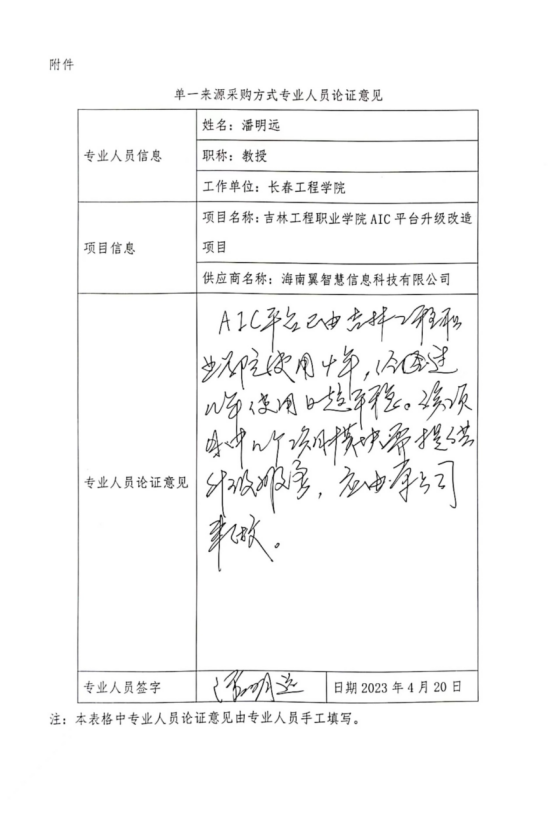 附件
单一来源采购方式专业人员论证意见
专业人员信息
姓名：潘明远
职称：教授
工作单位：长春工程学院
项目信息
项目名称：吉林工程职业学院 AIC 平台升级改造
项目
供应商名称：海南翼智慧信息科技有限公司
专业人员论证意见
AIC平台已由吉林工程职
业学院使用十年，经过
几年使用日趋平稳。该项
目中几个项目模块需提供
升级服务，应由原公司
来做。
专业人员签字
潘明远
日期 2023 年 4 月 20 日
注：本表格中专业人员论证意见由专业人员手工填写。